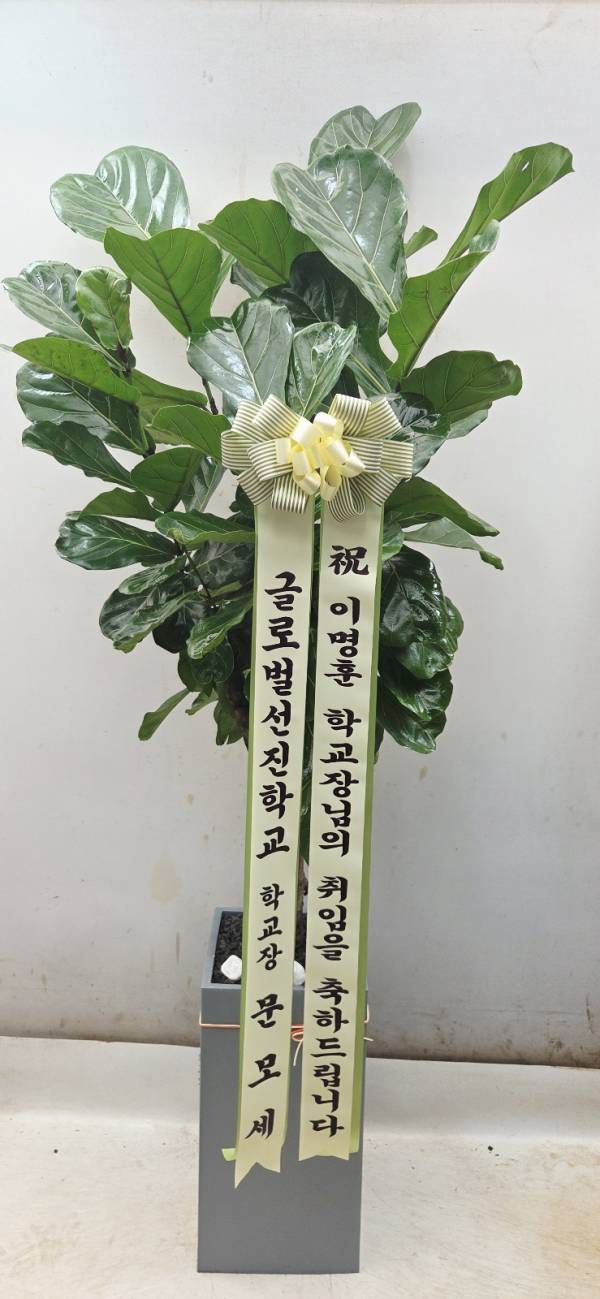 祝 이명훈 학교장님의 취임을 축하드립니다
글로벌선진학교 학교장 문모세